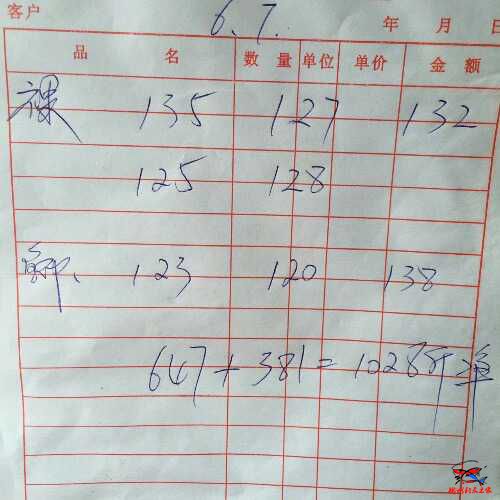 客户 6.7. 年 月 日
品 名 数 量 单位 单价 金 额
裸 135 127 132
125 128
鲜、 123 120 138
647+381=1028斤 准